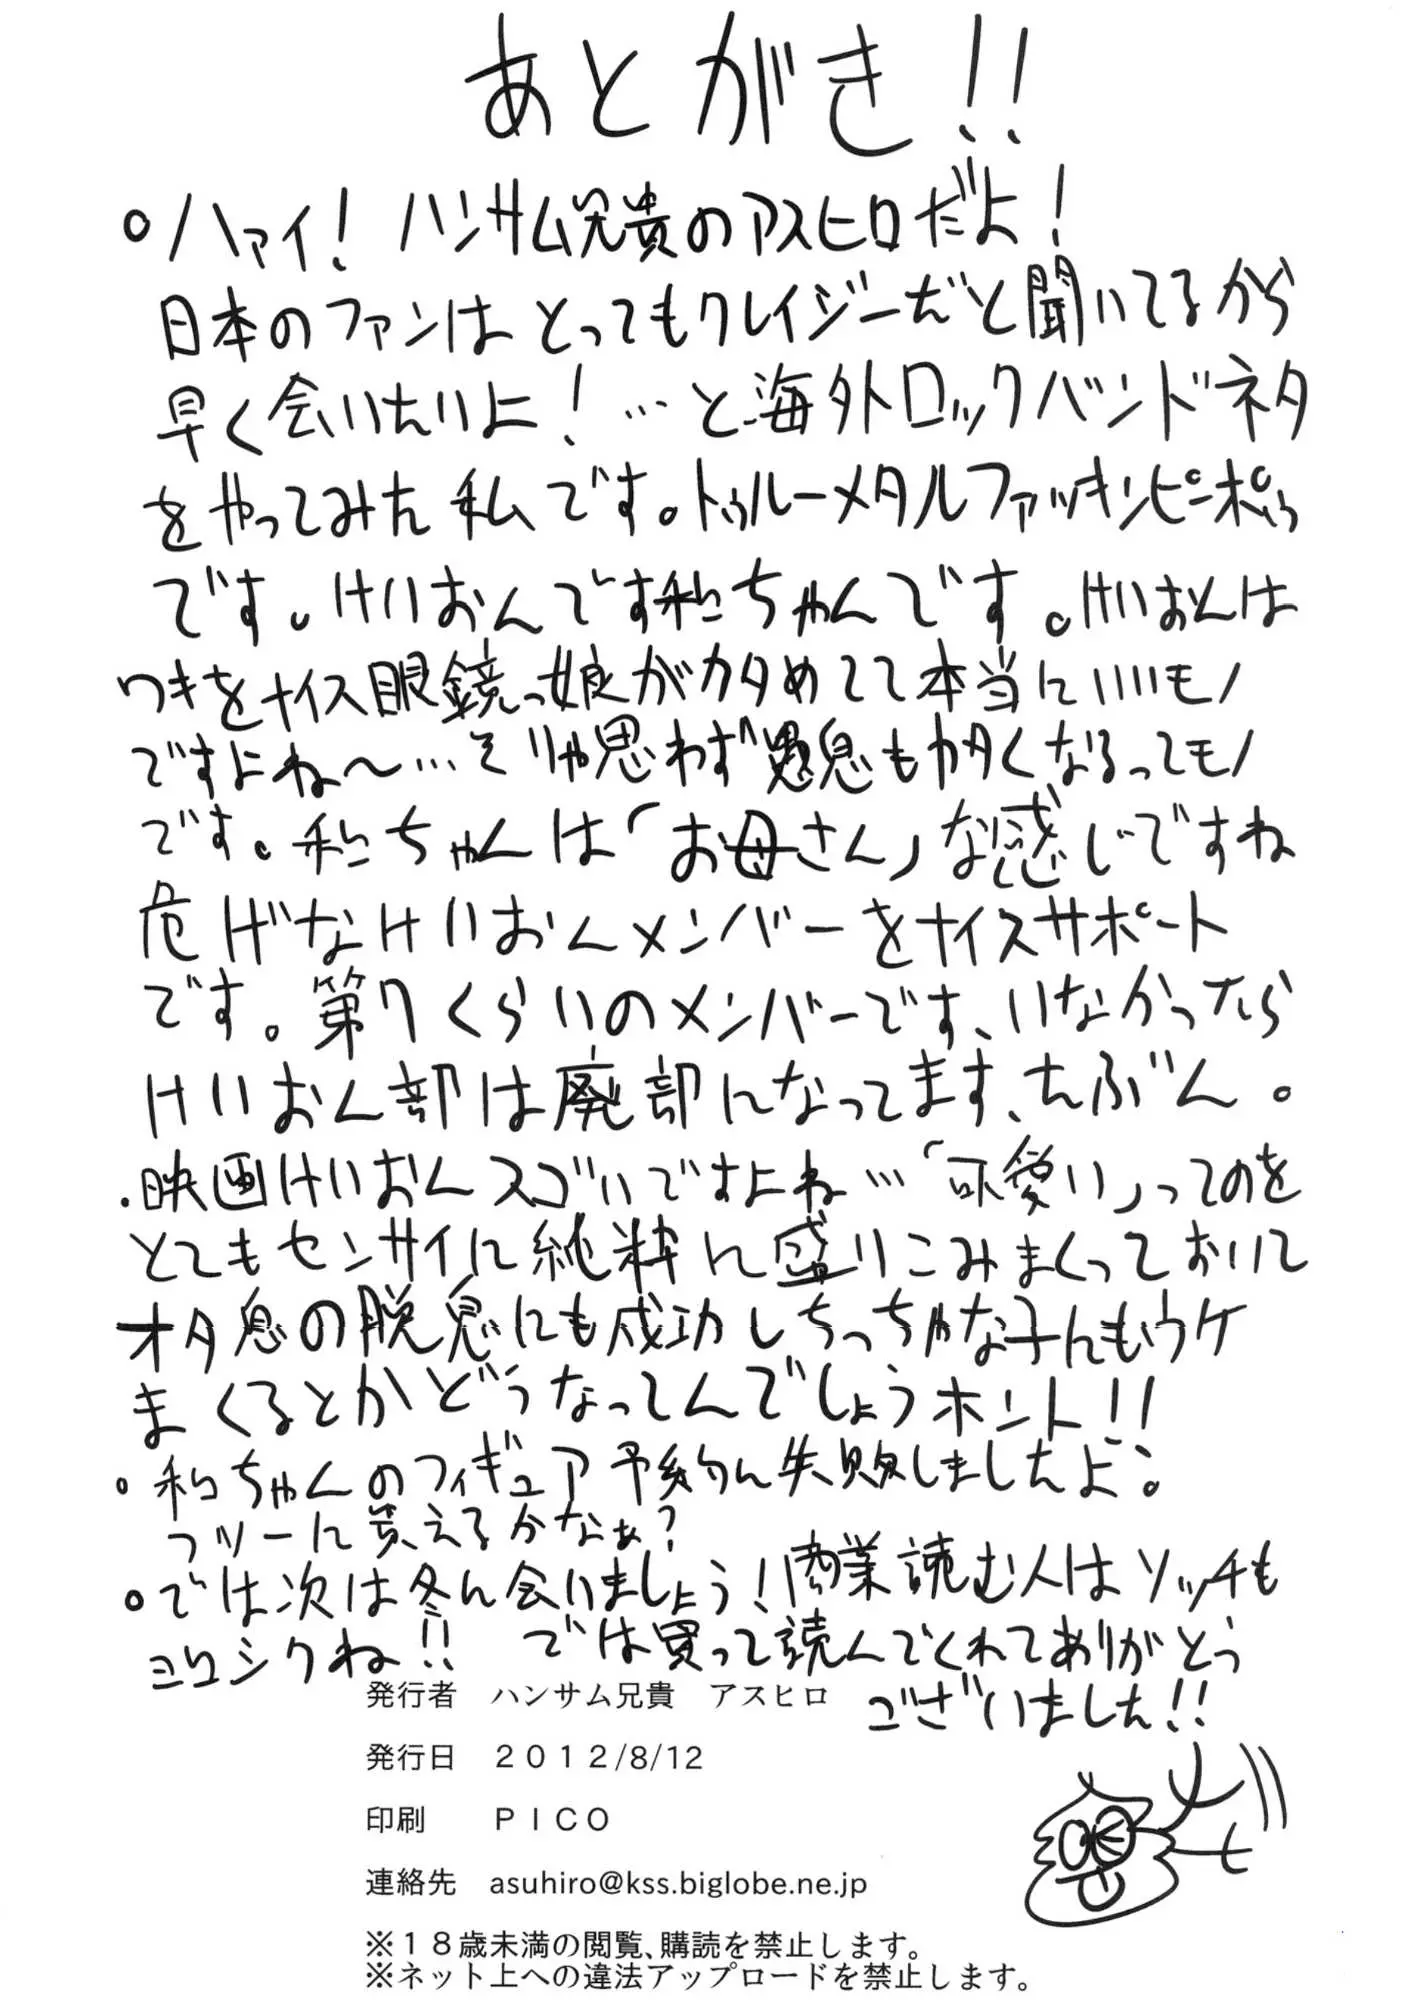 あとがき!!
○ハァイ! ハンサム兄貴のアスヒロだよ!
日本のファンはとってもクレイジーだと聞いてるから
早く会いたいよ!…と海外ロックバンドネタ
をやってみた私です。トゥルーメタルファッキンピンポゥ
です。けいおんです和ちゃんです。けいおんは
ワキをナイス眼鏡っ娘がカタめてて本当にいいモノ
ですよね〜…そりゃ思わず愚息もカタくなるってモノ
です。和ちゃんは「お母さん」な感じですね
危げなけいおんメンバーをナイスサポート
です。第7くらいのメンバーです、いなかったら
けいおん部は廃部になってます、たぶん。
・映画けいおんスゴいですよね…「可愛い」ってのを
とてもセンサイに純粋に盛りこみまくっておいて
オタ息の脱臭にも成功しちっちゃな子んもウケ
まくるとかどうなってんでしょうホント!!
○和ちゃんのフィギュア予約に失敗しましたよ。
フツーに買えるかなぁ?
○では次は冬に会いましょう!商業読む人はソッチも
ヨロシクね!! では買って読んでくれてありがとう
ございました!!
発行者 ハンサム兄貴 アスヒロ
発行日 2012/8/12
印刷 PICO
連絡先 asuhiro@kss.biglobe.ne.jp
※18歳未満の閲覧、購読を禁止します。
※ネット上への違法アップロードを禁止します。